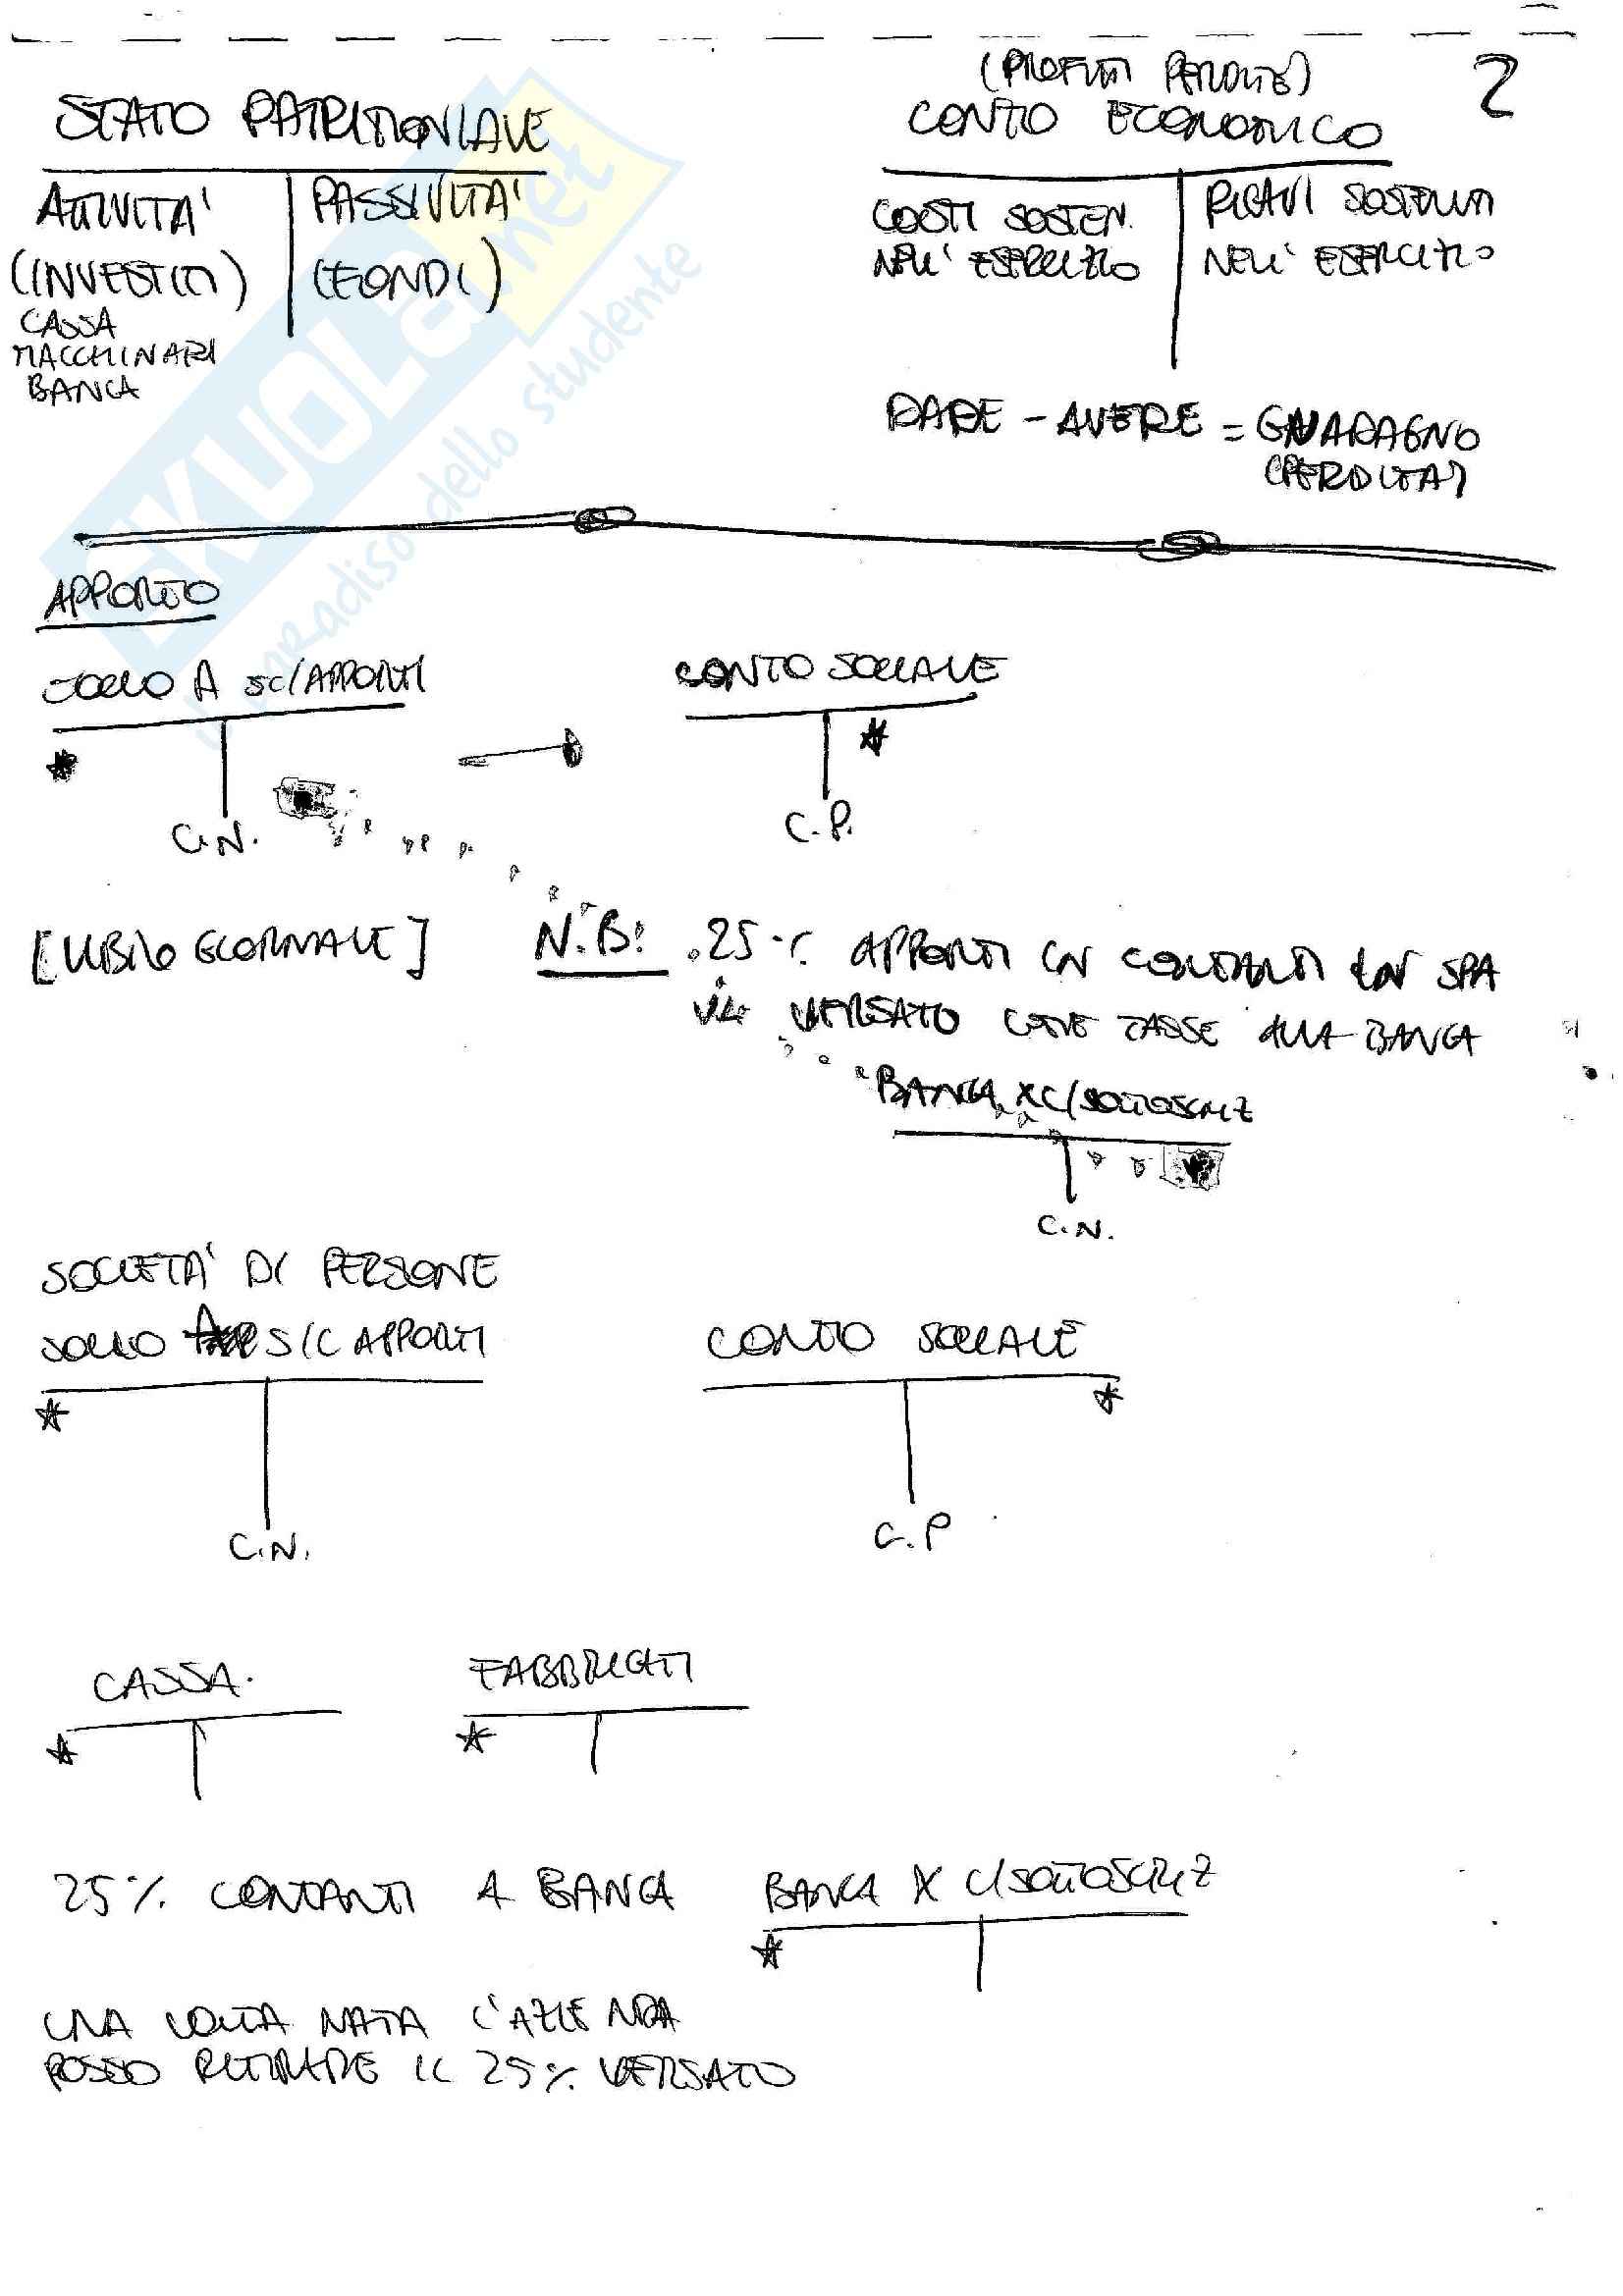 (PROFITTI PERDITE)
2
STATO PATRIMONIALE
CONTO ECONOMICO
ATTIVITA' PASSIVITA'
(INVESTITI) (FONDI)
CASSA
MACCHINARI
BANCA
COSTI SOSTEN. RICAVI SOSTENUTI
NELL'ESERCIZIO NELL'ESERCIZIO
DARE - AVERE = GUADAGNO
(PERDITA)
APPORTO
SOCIO A SC/APPORTI
CONTO SOCIALE
C.N.
C.P.
[LIBRO GIORNALE]
N.B: .25% APPORTI IN CONTANTI IN SPA
VERSATO COME TASSE ALLA BANCA
BANCA X C/SOTTOSCRIZ
C.N.
SOCIETA' DI PERSONE
SOCIO S/C APPORTI
CONTO SOCIALE
C.N.
C.P
CASSA.
FABBRICATI
25% CONTANTI A BANCA
BANCA X C/SOTTOSCRIZ
UNA VOLTA NATA L'AZIENDA
POSSO RITIRARE IL 25% VERSATO
SKUOLA.net
il paradiso dello studente